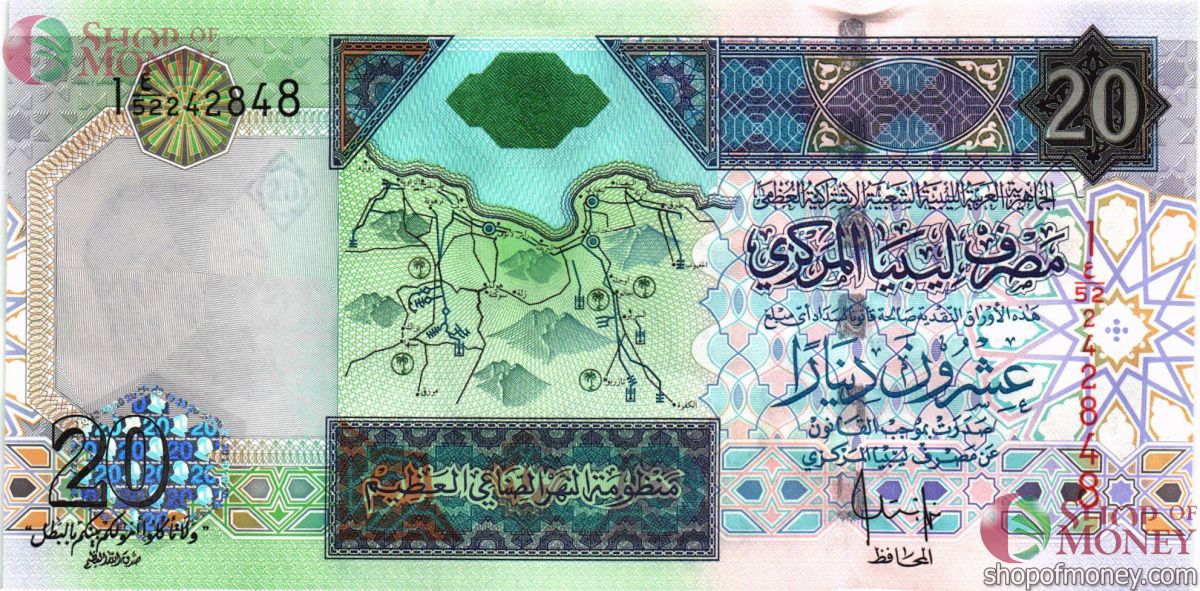 SHOP OF
MONEY
1 ع/52 242848
20
الجماهيرية العربية الليبية الشعبية الاشتراكية العظمى
مصرف ليبيا المركزي
هذه الأوراق النقدية صالحة قانونا لسداد أي مبلغ
عشرون دينارًا
صدرت بموجب القانون
عن مصرف ليبيا المركزي
المحافظ
1 ع/52 242848
مرزق
تازربو
الكفرة
منظومة النهر الصناعي العظيم
20
"ولا تأكلوا أموالكم بينكم بالبطل"
صدق الله العظيم
SHOP OF
MONEY
shopofmoney.com